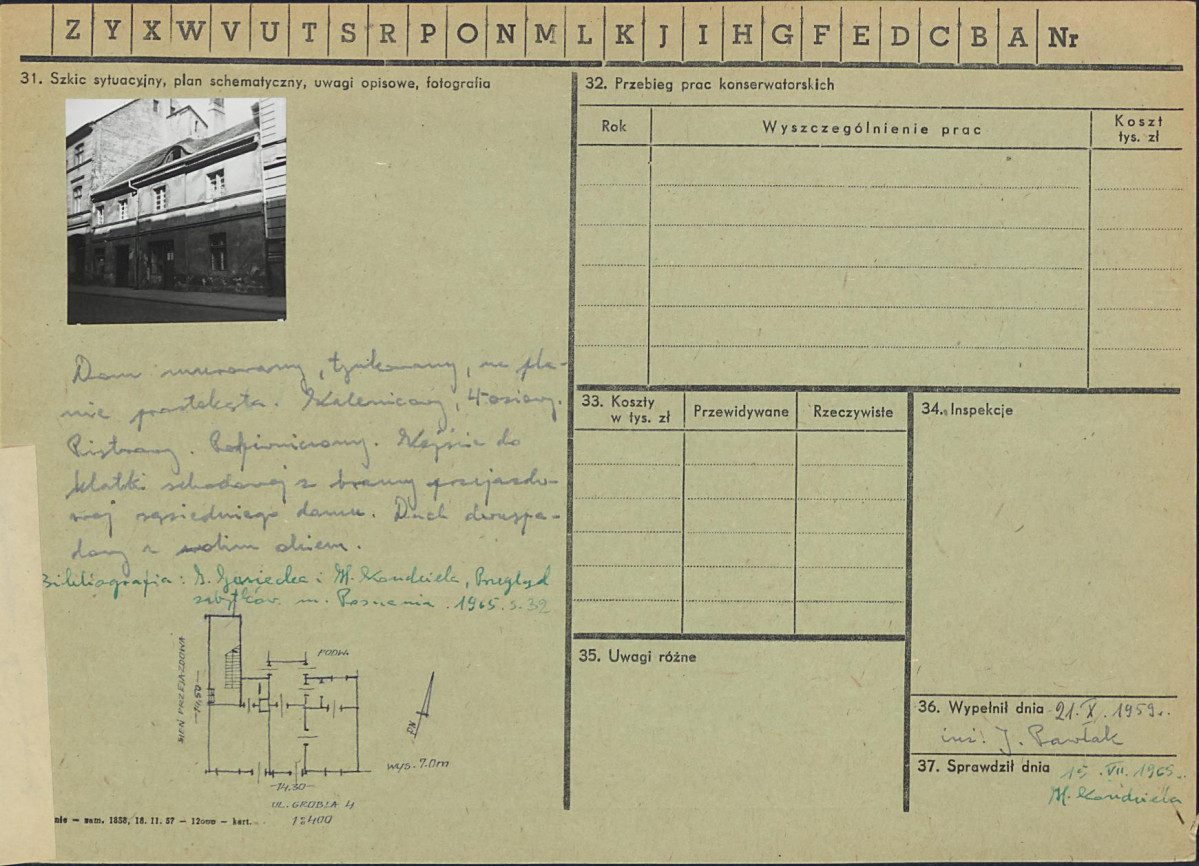 Z Y X W V U T S R P O N M L K J I H G F E D C B A Nr
31. Szkic sytuacyjny, plan schematyczny, uwagi opisowe, fotografia
Dom murowany, tynkowany, na pla-
nie prostokąta. Kalenicowy, 4 osiowy.
Piętrowy. Podpiwniczony. Wejście do
klatki schodowej z bramy przejazdo-
wej sąsiedniego domu. Dach dwuspa-
dowy z wolim okiem.
Bibliografia: i M. Kondziela, Przegląd
zabytków m. Poznania. 1965. s. 39
PODW.
SIEŃ PRZEJAZDOWA
14.50
PN
wys. 7.0m
14.30
UL. GROBLA 4
1:400
nie — zam. 1858, 18. 11. 57 — 12000 — kart.
32. Przebieg prac konserwatorskich
Rok
Wyszczególnienie prac
Koszt
tys. zł
33. Koszty
w tys. zł
Przewidywane
Rzeczywiste
34. Inspekcje
35. Uwagi różne
36. Wypełnił dnia 21. X. 1959 r.
inż. J. Pawlak
37. Sprawdził dnia 15. VII. 1965.
M. Kondziela